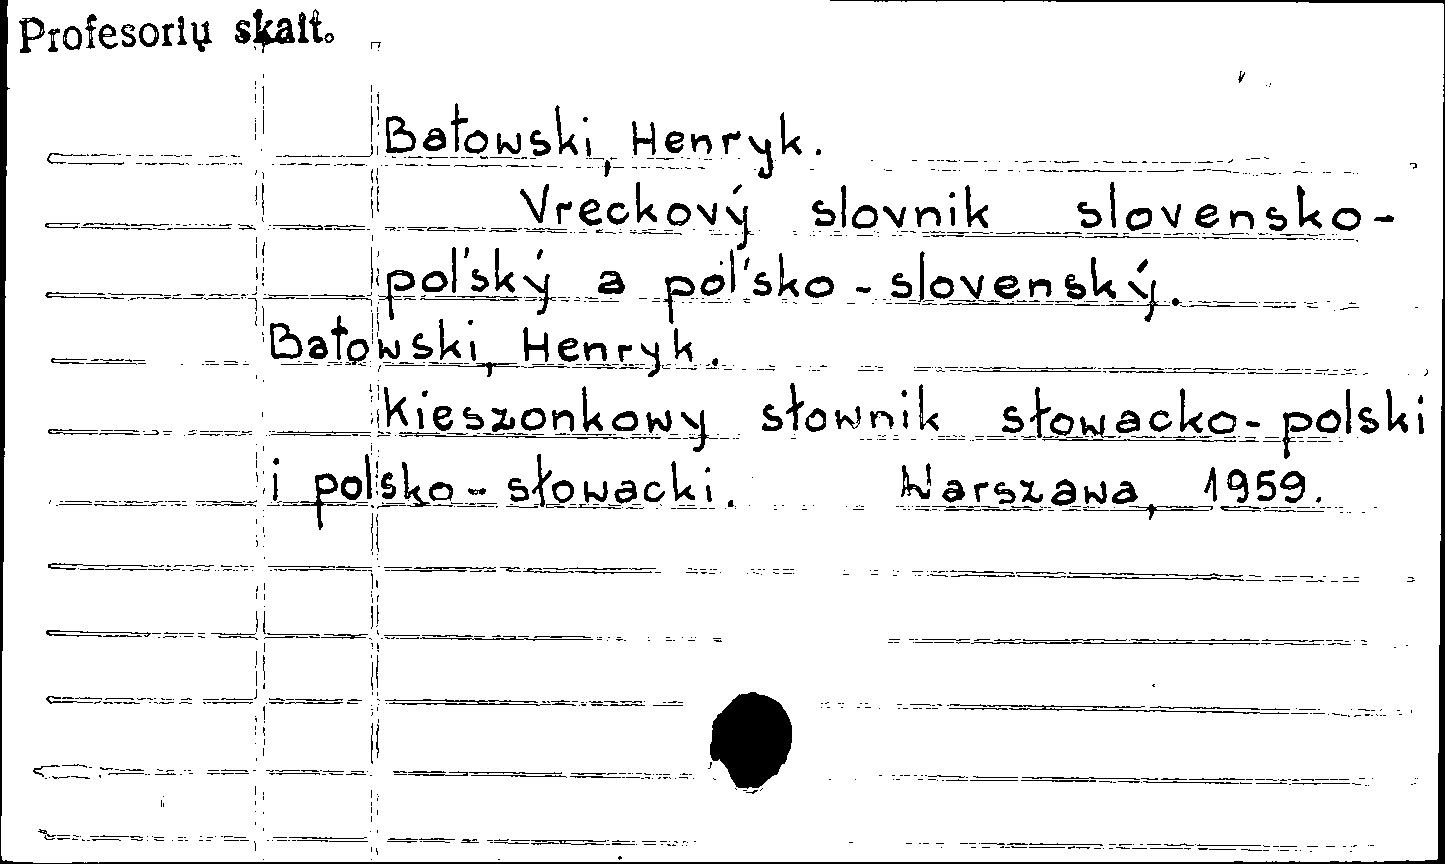 Profesorių skait.
Batowski, Henryk.
Vreckový slovnik slovensko-
poľský a poľsko-slovenský.
Batowski, Henryk.
Kieszonkowy słownik słowacko-polski
i polsko-słowacki. Warszawa, 1959.